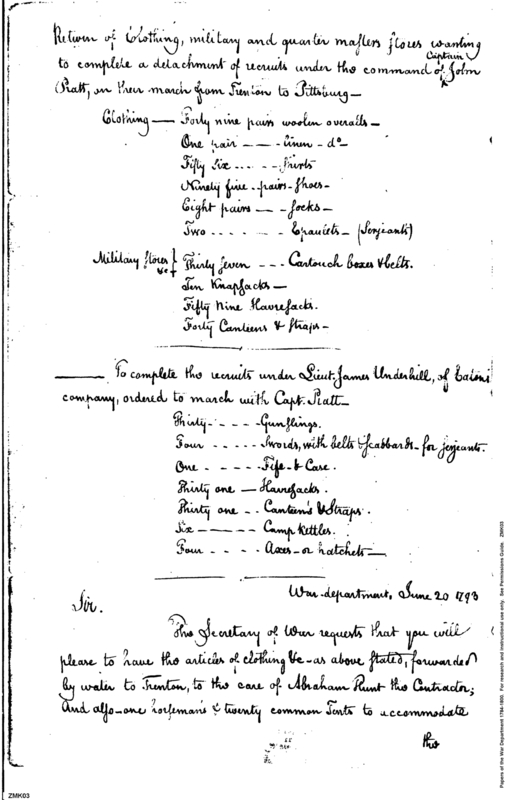 Return of Clothing, military and quarter masters stores wanting
to complete a detachment of recruits under the command of Captain John
Platt, on their march from Trenton to Pittsburg—
Clothing — Forty nine pairs woolen overalls—
One pair — — linen - do—
Fifty Six - - - - Shirts
Ninety five - pairs - Shoes—
Eight pairs — - socks—
Two - - - - - Epaulets — (Serjeants)
Military stores &c } Thirty seven - - - Cartouch boxes & belts.
Ten Knapsacks—
Fifty Nine Haversacks.
Forty Canteens & Straps—
To complete the recruits under Lieut. James Underhill, of Eatons
company, ordered to march with Capt. Platt—
Thirty - - - - - Gunslings.
Four - - - - - Swords, with belts & scabbards - for serjeants.
One - - - - - Fife & Case.
Thirty one — Haversacks.
Thirty one - - Canteens & Straps.
Six — — — Camp Kettles.
Four - - - - Axes - or hatchets—
War-department, June 20 1793
Sir.
The Secretary of War requests that you will
please to have the articles of clothing &c - as above stated, forwarded
by water to Trenton, to the care of Abraham Hunt the Contractor;
And also - one horseman's & twenty common Tents to accommodate
the
ZMK03
Papers of the War Department 1784-1800. For research and instructional use only. See Permissions Guide. ZMK03